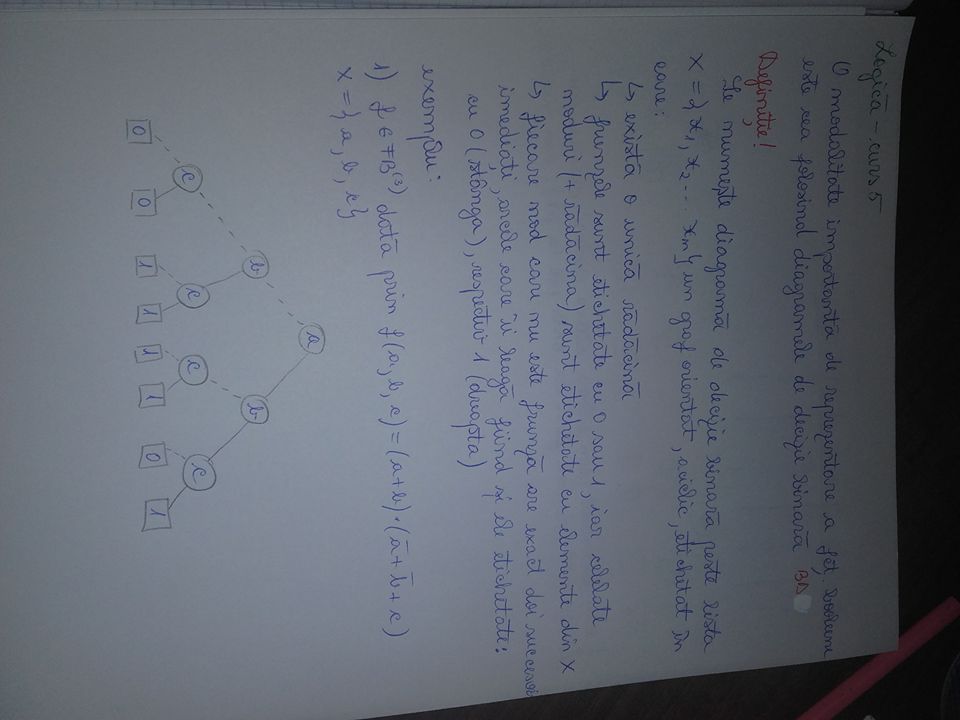 Logică - curs 5
O modalitate importantă de reprezentare a fct. booleene
este cea folosind diagramele de decizie binară BD
Definiție!
Se numește diagramă de decizie binară peste lista
X = { x1, x2 ... xn } un graf orientat, aciclic, etichetat în
care:
↳ există o unică rădăcină
↳ frunzele sunt etichetate cu 0 sau 1, iar celelate
noduri (+ rădăcina) sunt etichetate cu elemente din X
↳ fiecare nod care nu este frunză are exact doi succesori
imediați, arcele care îi leagă fiind și ele etichetate:
cu 0 (stânga), respectiv 1 (dreapta)
exemplu:
1) f ∈ FB(3) dată prin f(a, b, c) = (a+b)·(ā+b̄+c)
X = { a, b, c }
a
b b
c c c c
0 0 1 1 1 1 0 1